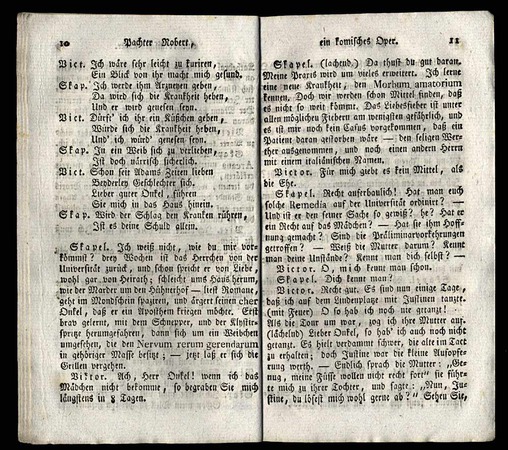 10 Pachter Robert,
Vict. Ich wäre sehr leicht zu kuriren,
Ein Blick von ihr macht mich gesund.
Skap. Ich werde ihm Arzneyen geben,
Da wird sich die Krankheit heben,
Und er wird genesen seyn.
Vict. Dürft' ich ihr ein Küßchen geben,
Würde sich die Krankheit heben,
Und ich würd' genesen seyn.
Skap. In ein Weib sich zu verlieben,
Ist doch närrisch sicherlich.
Vict. Schon seit Adams Zeiten lieben
Beyderley Geschlechter sich.
Lieber guter Onkel, führen
Sie mich in das Haus hinein.
Skap. Wird der Schlag den Kranken rühren,
Ist es deine Schuld allein.
Skapel. Ich weiß nicht, wie du mir vor-
kömmst? drey Wochen ist das Herrchen von der
Universität zurück, und schon spricht er von Liebe,
wohl gar von Heirath; schleicht ums Haus herum,
wie der Marder um den Hühnerhof — liest Romane
geht im Mondschein spaziren, und ärgert seinen cher
Onkel, daß er ein Apothekern kriegen möchte. Erst
brav gelernt, mit dem Schnepper, und der Klystier-
sprize herumgefahren, dann sich um ein Weibchen
umgesehen, die den Nervum rerum gerendarum
in gehöriger Masse besitzt; — jetzt laß er sich die
Grillen vergehen.
Viktor. Ach, Herr Onkel! wenn ich das
Mädchen nicht bekomme, so begraben Sie mich
längstens in 8 Tagen.
ein komisches Oper. 11
Skapel. (lachend.) Da thust du gut daran.
Meine Praxis wird um vieles erweitert. Ich lerne
eine neue Krankheit, den Morbum amatorium
kennen. Doch wir werden schon Mittel finden, daß
es nicht so weit kömmt. Das Liebesfieber ist unter
allen möglichen Fiebern am wenigsten gefährlich, und
es ist mir noch kein Casus vorgekommen, daß ein
Patient daran gestorben wäre — den seligen Wer-
ther ausgenommen, und noch einen andern Herrn
mit einem italiänischen Namen.
Victor. Für mich giebt es kein Mittel, als
die Ehe.
Skapel. Recht auferbaulich! Hat man euch
solche Remedia auf der Universität ordinirt? —
Und ist er den seiner Sache so gewiß? he? Hat er
ein Recht auf das Mädchen? — Hat sie ihm Hoff-
nung gemacht? Sind die Präliminarvorkehrungen
getroffen? — Weiß die Mutter darum? Kennt
man deine Umstände? Kennt man dich selbst? —
Victor. O, mich kennt man schon.
Skapel. Dich kennt man?
Victor. Recht gut. Es sind nun einige Tage,
daß ich auf dem Lindenplatze mit Justinen tanzte.
(mit Feuer) O so hab ich noch nie getanzt!
Als die Tour um war, zog ich ihre Mutter auf.
(lächelnd) Lieber Onkel, so hab' ich auch noch nicht
getanzt. Es hielt verdammt schwer, die alte im Tact
zu erhalten; doch Justine war die kleine Aufopfe-
rung werth. — Endlich sprach die Mutter: „Ge-
nug, meine Füsse wollen nicht recht fort“ sie führ-
te mich zu ihrer Tochter, und sagte: „Nun, Ju-
stine, du lösest mich wohl gerne ab?“ Sehen Sie,